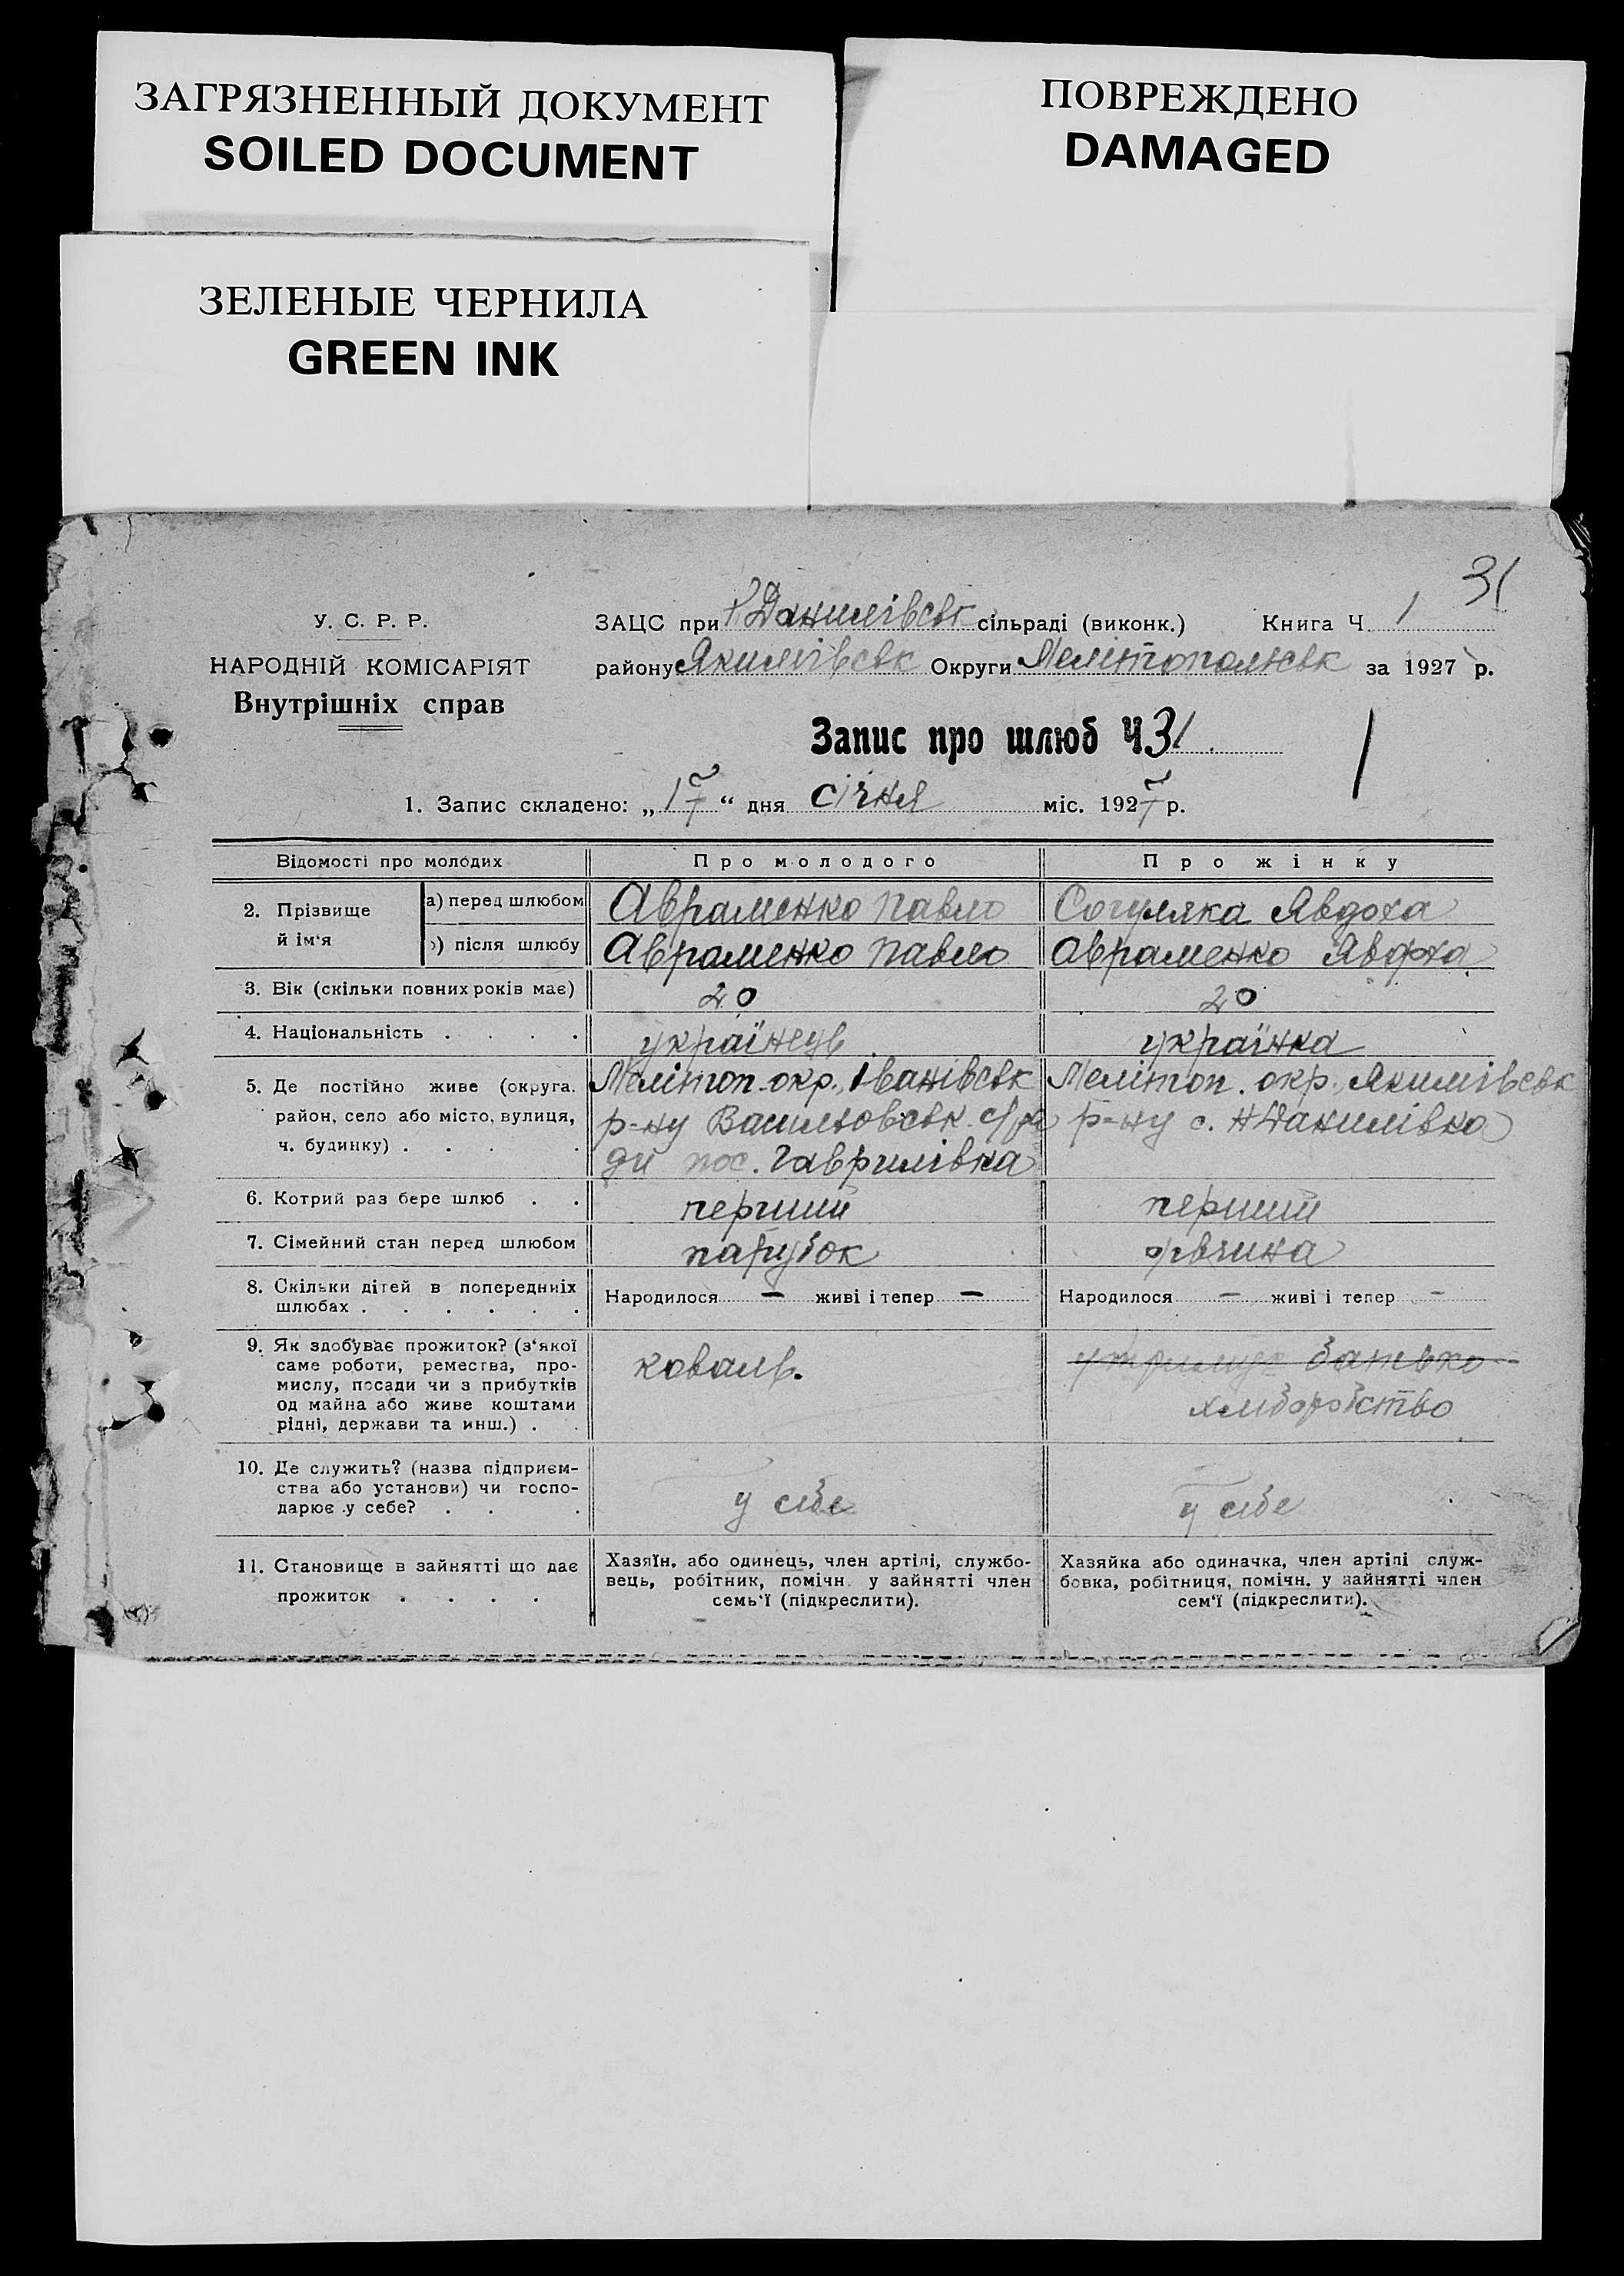 ЗАГРЯЗНЕННЫЙ ДОКУМЕНТ
SOILED DOCUMENT
ПОВРЕЖДЕНО
DAMAGED
ЗЕЛЕНЫЕ ЧЕРНИЛА
GREEN INK
31
У. С. Р. Р.
НАРОДНІЙ КОМІСАРІЯТ
Внутрішніх справ
ЗАЦС при Данилівськ сільраді (виконк.) Книга Ч. 1
району Якимівськ Округи Мелітопольськ за 1927 р.
Запис про шлюб Ч 31
1. Запис складено: „17“ дня січня міс. 1927 р.
Відомості про молодих Про молодого Про жінку
2. Прізвище й ім'я
а) перед шлюбом Авраменко Павло Согуляка Явдоха
б) після шлюбу Авраменко Павло Авраменко Явдоха
3. Вік (скільки повних років має) 20 20
4. Національність . . . . українець українка
5. Де постійно живе (округа. район, село або місто, вулиця, ч. будинку) . . . .
Мелітоп. окр., Іванівськ
р-ну Васильовськ. с/ра
ди пос. Гаврилівка
Мелітоп. окр., Якимівськ
р-ну с. Н Данилівка
6. Котрий раз бере шлюб . . перший перший
7. Сімейний стан перед шлюбом парубок дівчина
8. Скільки дітей в попередниїх
шлюбах . . . . . .
Народилося — живі і тепер —
Народилося — живі і тепер —
9. Як здобуває прожиток? (з'якої
саме роботи, ремества, про-
мислу, посади чи з прибутків
од майна або живе коштами
рідні, держави та инш.) . .
коваль.
утримує батько
хліборобство
10. Де служить? (назва підприєм-
ства або установи) чи госпо-
дарює у себе? . . .
у себе
у себе
11. Становище в зайнятті що дає
прожиток . . . .
Хазяїн, або одинець, член артілі, службо-
вець, робітник, помічн. у зайнятті член
семь'ї (підкреслити).
Хазяйка або одиначка, член артілі служ-
бовка, робітниця, помічн. у зайнятті член
сем'ї (підкреслити).